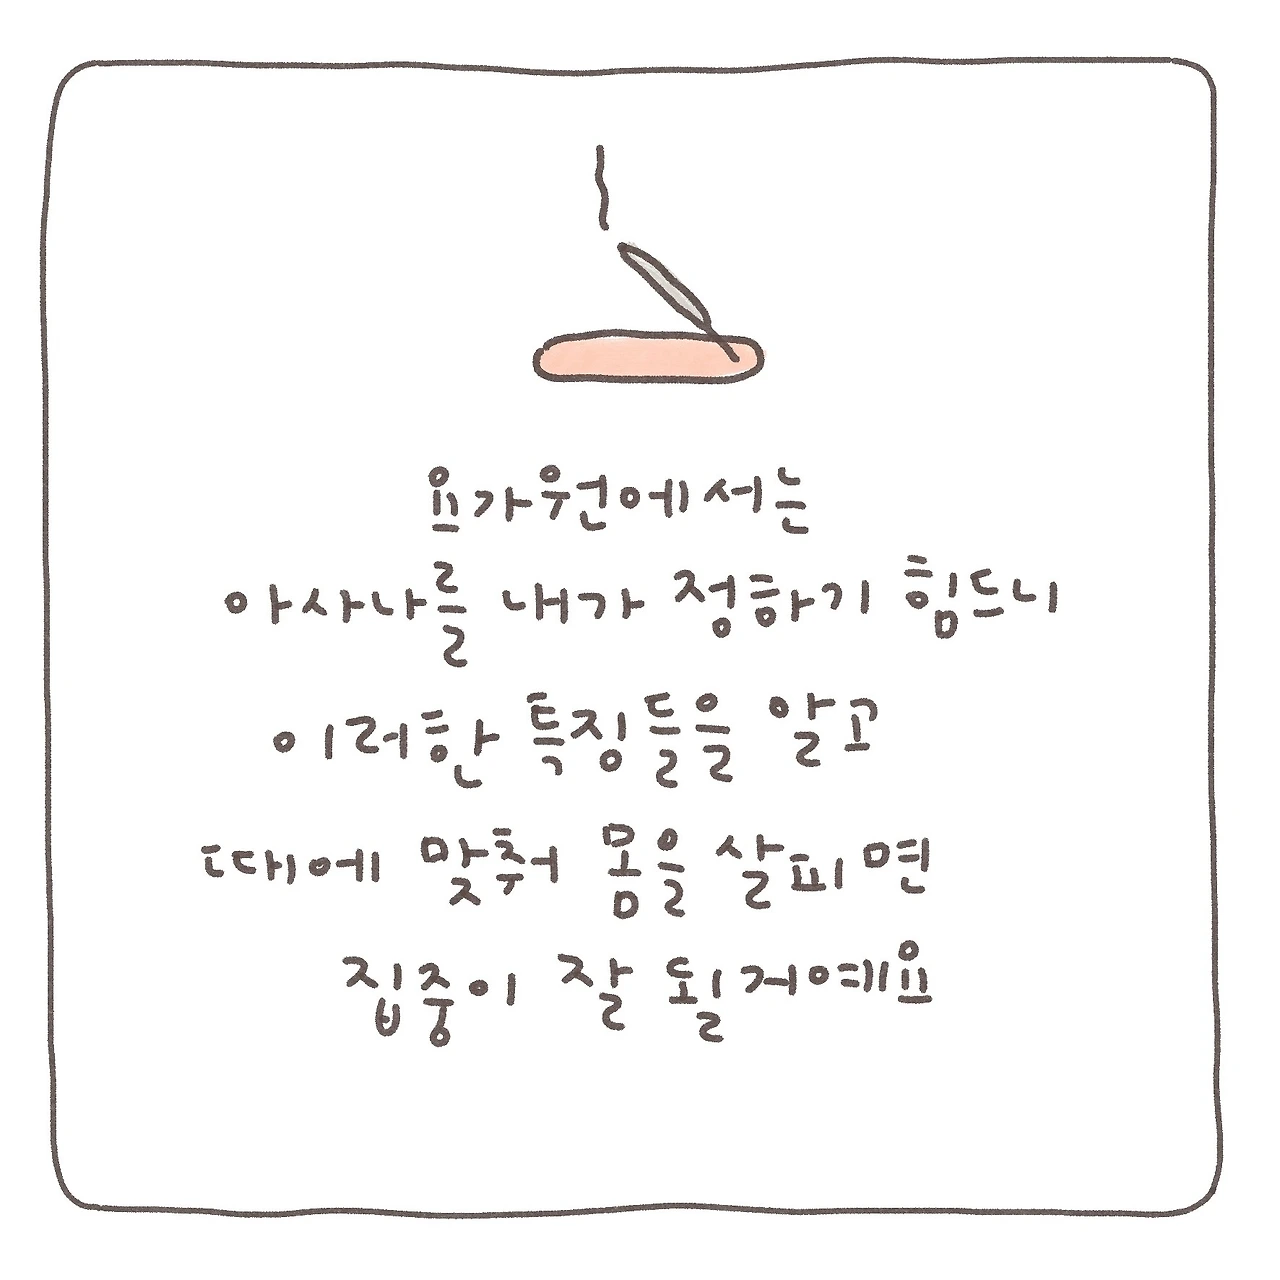 요가원에서는
아사나를 내가 정하기 힘드니
이러한 특징들을 알고
때에 맞춰 몸을 살피면
집중이 잘 될거예요